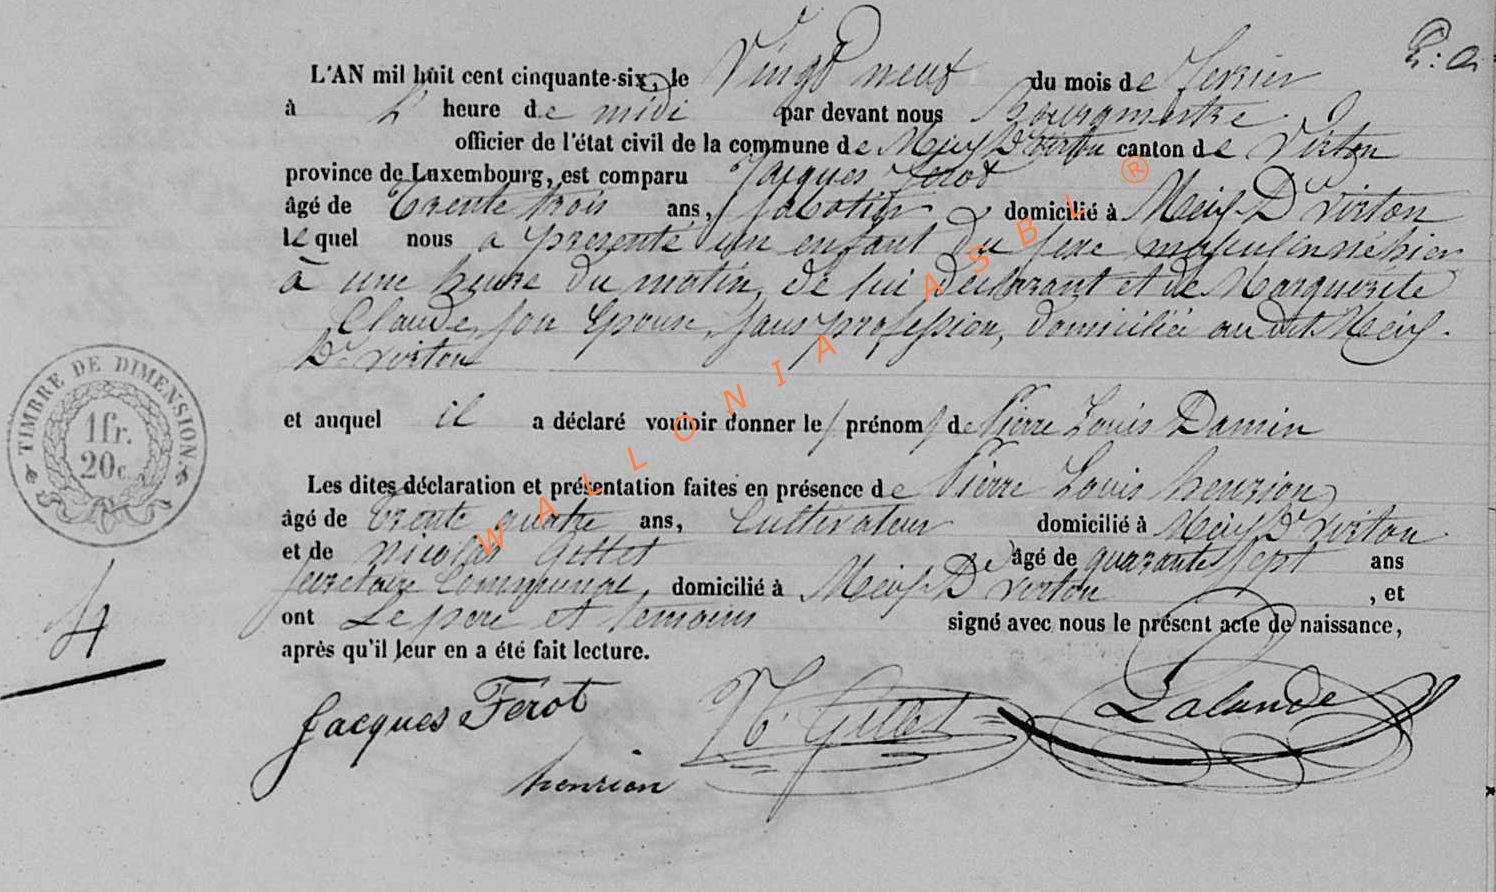 L'AN mil huit cent cinquante-six, le Vingt neuf du mois de fevrier
à L' heure de midi par devant nous Bourgmestre
officier de l'état civil de la commune de Meix D Virton canton de Virton
province de Luxembourg, est comparu Jacques Ferot
âgé de Trente trois ans, Sabotier domicilié à Meix-Dt Virton
lequel nous a présenté un enfant du sexe masculin né hier
à une heure du matin, de lui déclarant et de Marguerite
Claude, son Epouse, sans profession, domiciliée au dit Meix-
Dt Virton
et auquel il a déclaré vouloir donner le/ prénom/ de Pierre Louis Damien
Les dites déclaration et présentation faites en présence de Pierre Louis henrion
âgé de Trente quatre ans, Cultivateur domicilié à Meix Dt Virton
et de Nicolas Gillet âgé de quarante sept ans
Secretaire Communal, domicilié à Meix-Dt Virton, et
ont Le père et temoins signé avec nous le présent acte de naissance,
après qu'il leur en a été fait lecture.
Jacques Ferot N. Gillet Lalande
henrion
TIMBRE DE DIMENSION
1fr.
20c.
4
WALLONIA ASBL ®